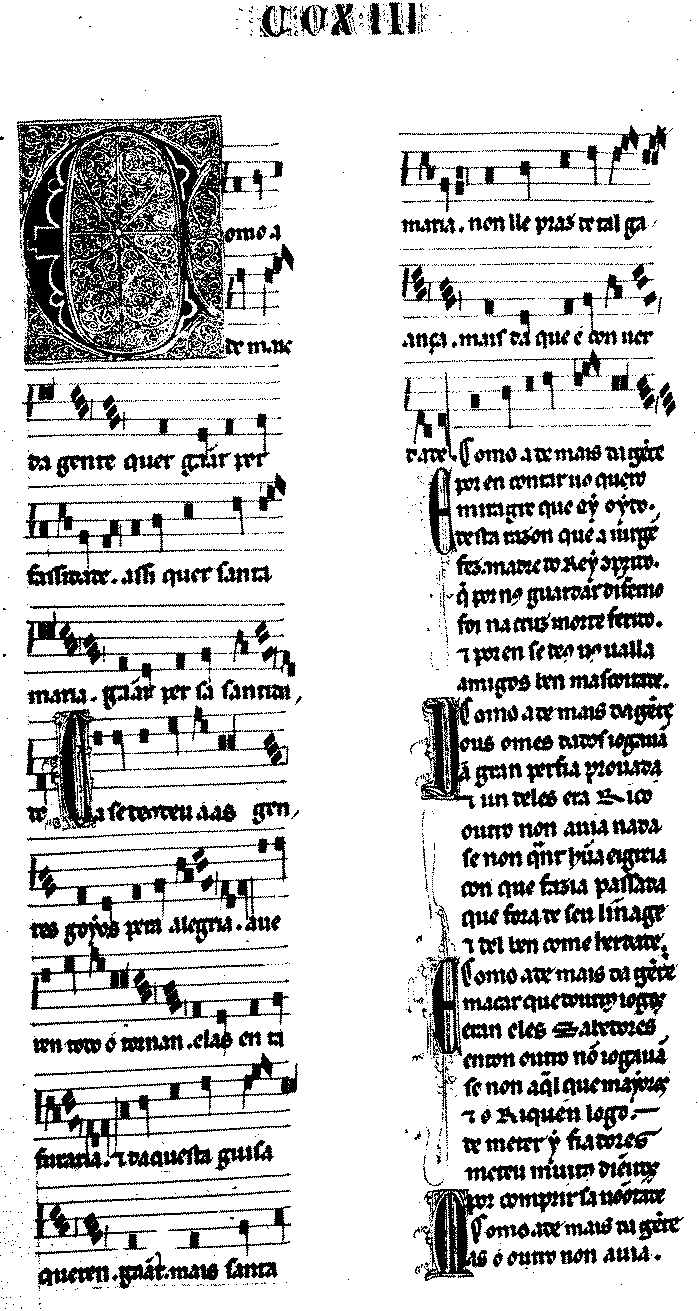 CCXIIII
omo a
de mais
da gente quer gãar per
falssidade. assi quer santa
maria. gãar per sa santida,
de Ca se dereteu áás gen,
tes goyos pera alegria. aue
ren todo o tornan. elas en ta
furaria. ⁊ daquesta guisa
queren. gãar. mais santa
maria. non lle praz de tal ga
ança. mais da que é con uer
dade. Como a de mais da gẽte
E por en contar uo quero
miragre que eý oýdo.
desta razon que a uirgẽ
fez. madre do Rey
q̃ por nos guardar
foi na cruz morte ferido.
⁊ por en se
amigos ben mascoitade.
Como a de mais da gẽte
Dous omes dados iogauã
a gran perfia prouada
⁊ un deles era Rico
outro non auia nada
se non q̃nt hũa eigreia
con que fazia passada
que fora de seu linage
⁊ del ben come herdade.
Como a de mais da gẽte
E macar que
eran eles sabedores
enton outro nõ iogauã
se non aq̃l que mayores
⁊ o Riquen logo.
de meter ý fiadores
meteu muito
por comprir sa uõõtade
Como. a de mais da gẽte
Mas o outro non auia.